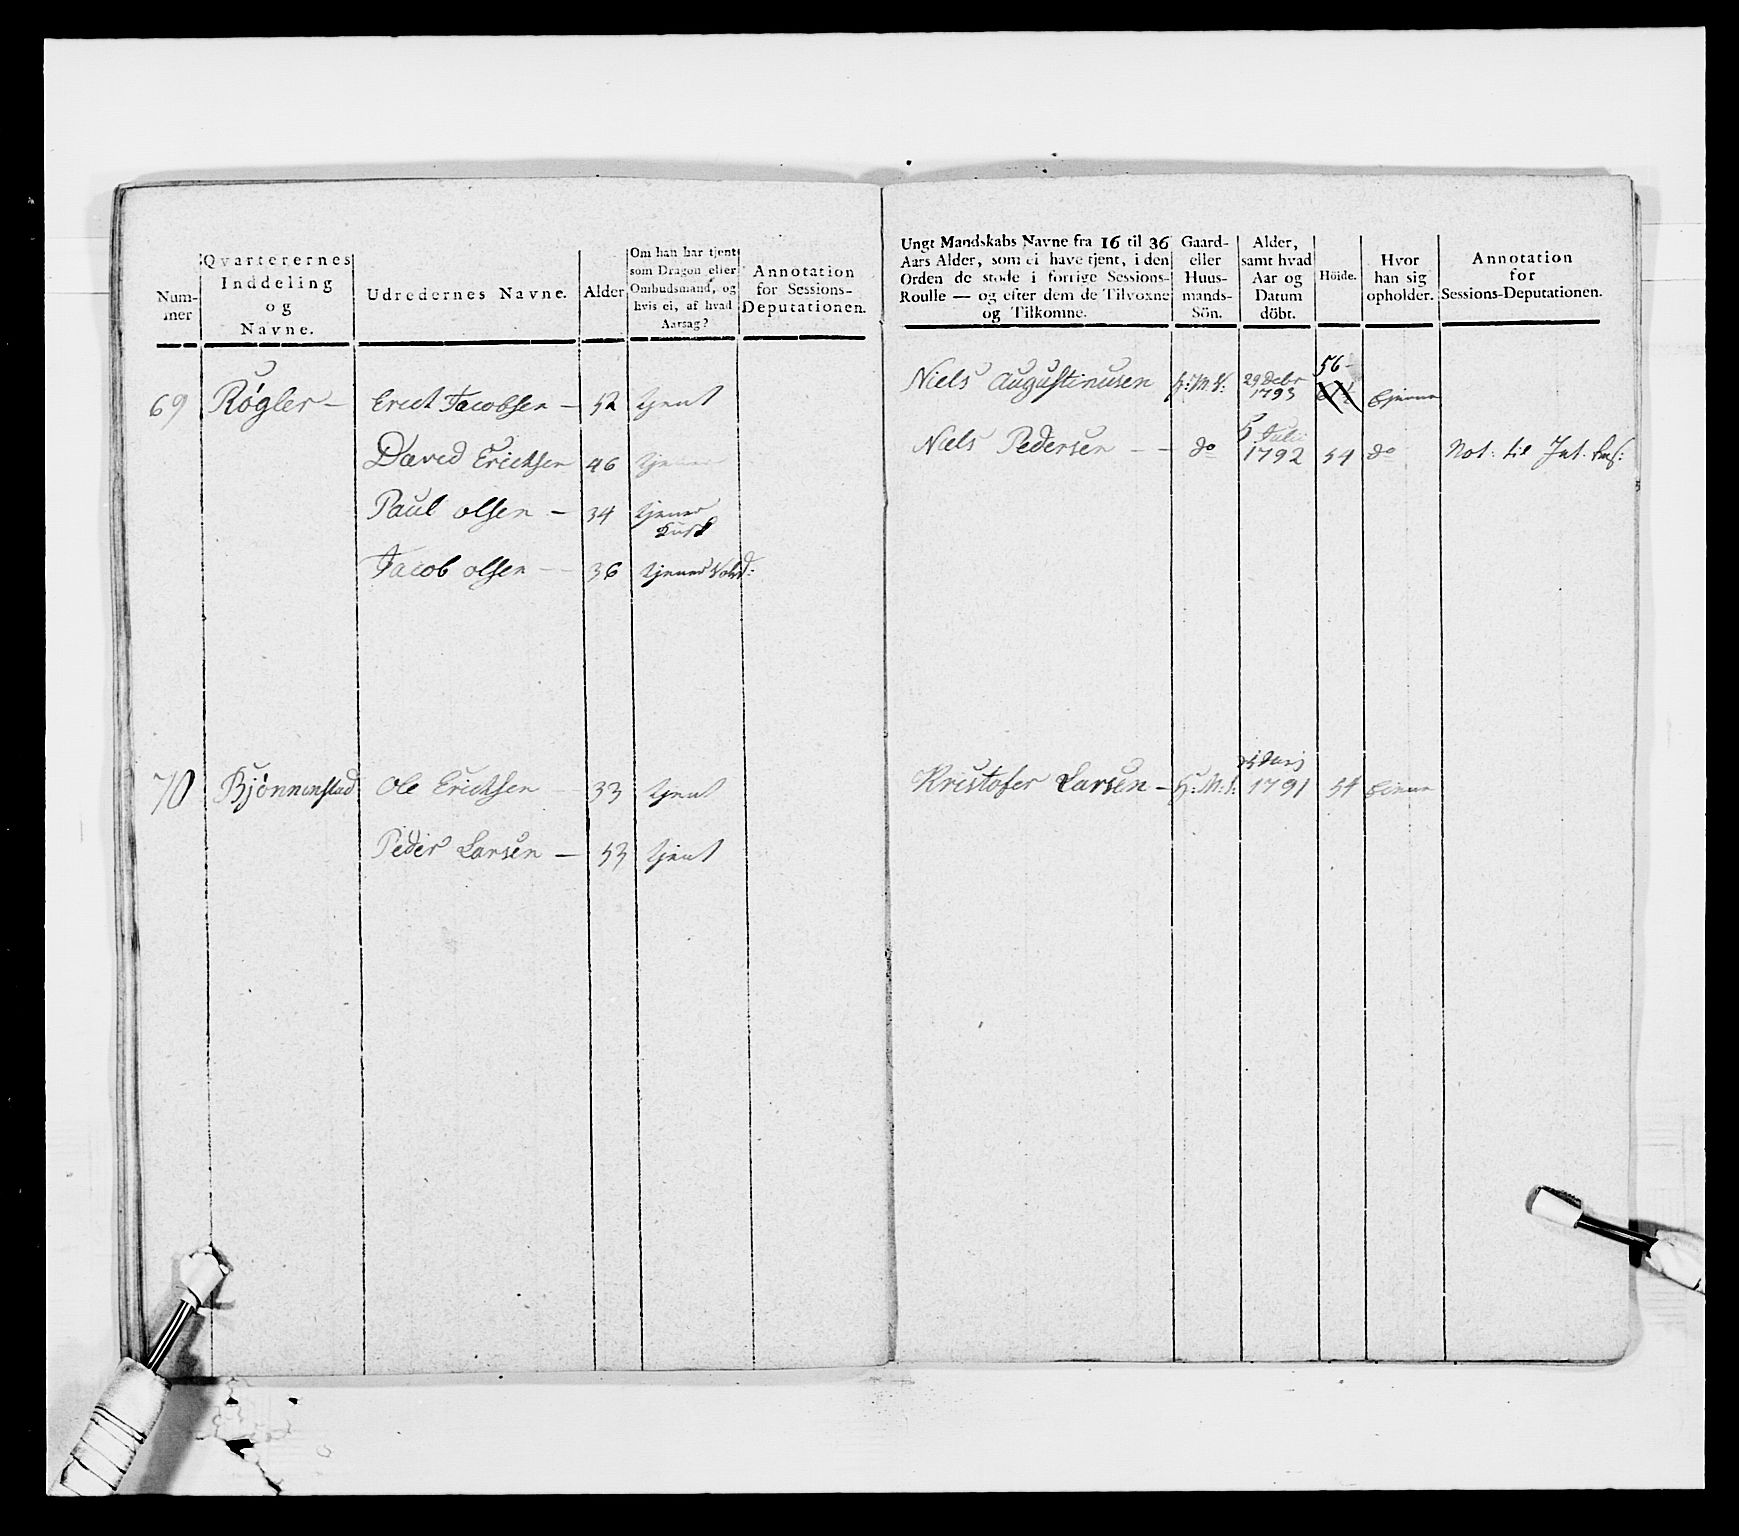 Num-
mer
Qvarterernes
Inddeling
og
Navne.
Udredernes Navne.
Alder
Om han har tjent
som Dragon eller
Ombudsmand, og
hvis ei, af hvad
Aarsag?
Annotation
for Sessions-
Deputationen.
69 Røgler — Erick Jacobsen — 52 tjent
David Ericksen 46 tjener
Paul olsen — 34 tjener
Jacob olsen — 36 tjener
70 Bjønnenstad Ole Ericksen — 33 tjent
Peder Larsen — 53 tjent
Ungt Mandskabs Navne fra 16 til 36
Aars Alder, som ei have tjent, i den
Orden de stode i forrige Sessions-
Roulle — og efter dem de Tilvoxne
og Tilkomne.
Gaard-
eller
Huus-
mands-
Sön.
Alder,
samt hvad
Aar og
Datum
döbt.
Höide.
Hvor
han sig
opholder.
Annotation
for
Sessions-Deputationen.
Niels Augustinusen H: M. S: 29 Debr 1793 56
Niels Pedersen — — do 5 Julii 1792 54 do Not: til Int.
Kristofer Larsen — H: M: S: 1791 54